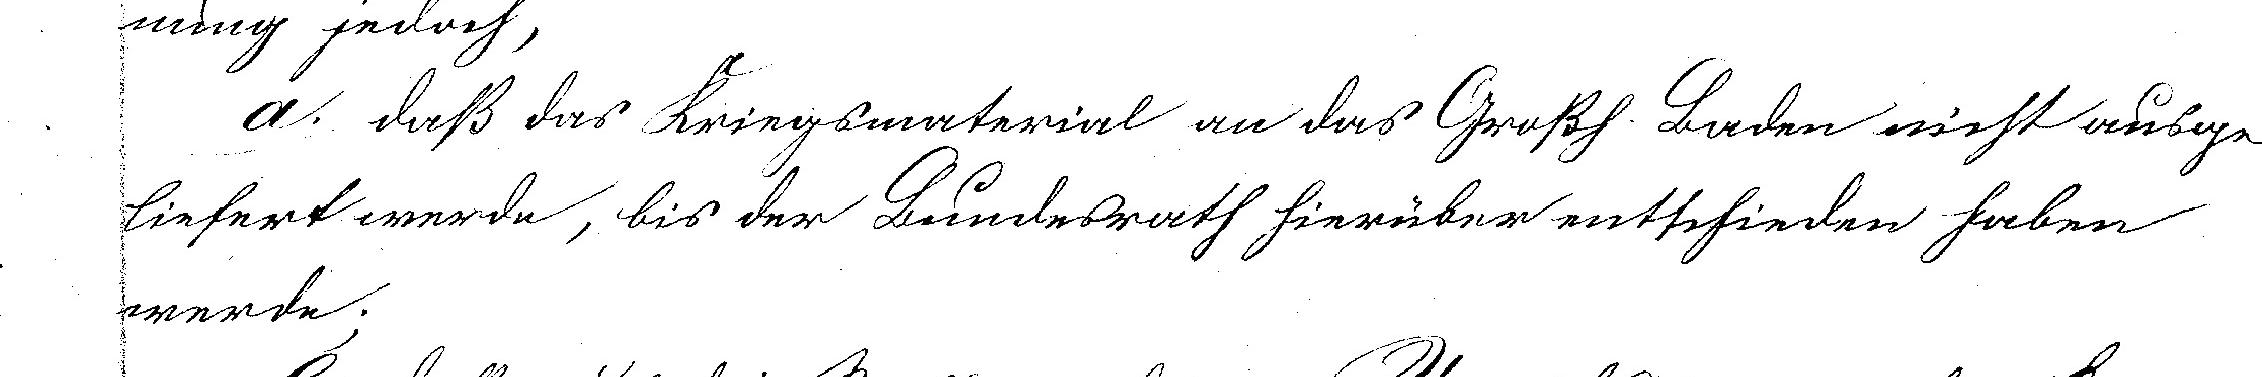 nung jedoch,
a. daß das Kriegsmaterial an das Großh. Baden nicht ausge
liefert werde, bis der Bundesrath hierüber entschieden haben
werde;